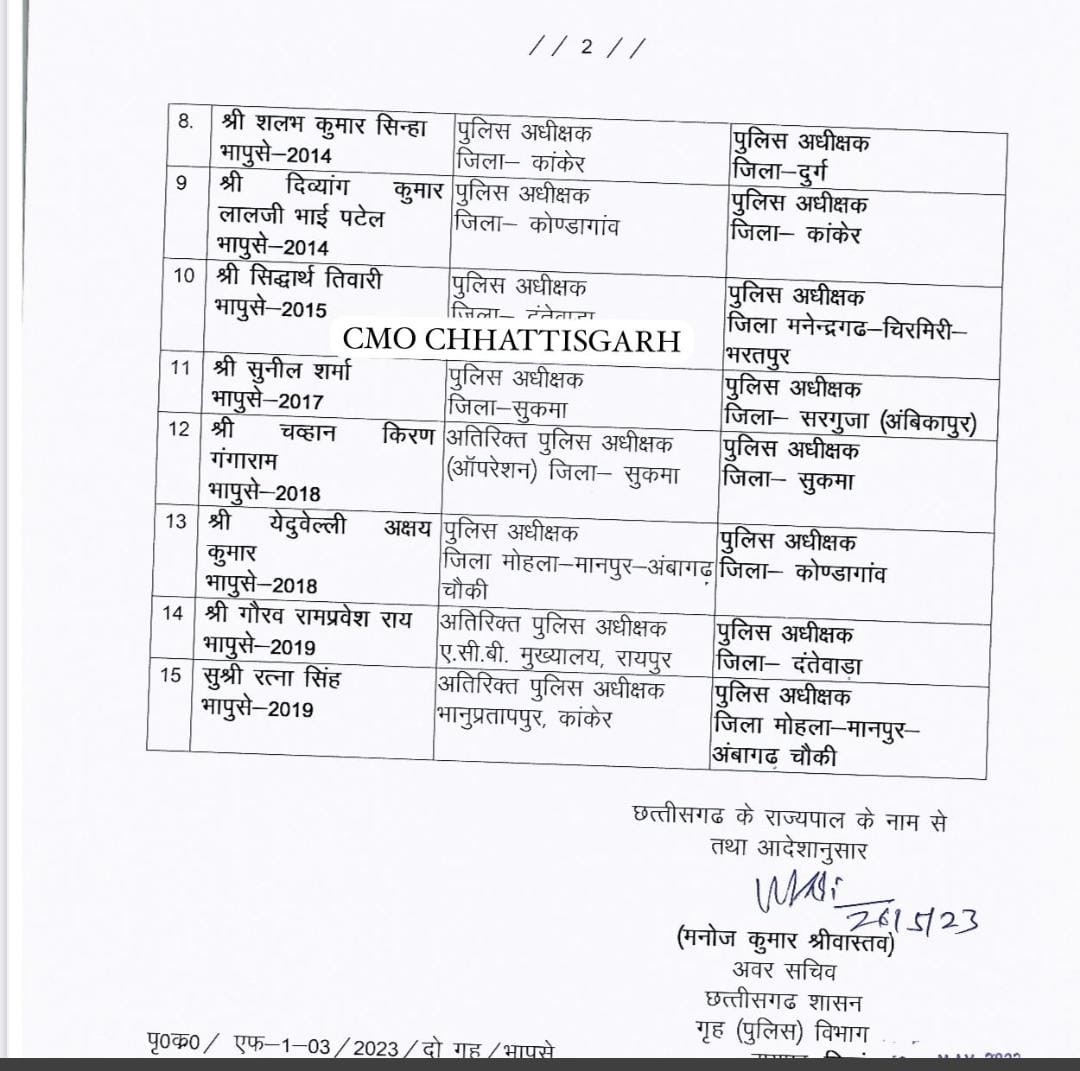 // 2 //
8. श्री शलभ कुमार सिन्हा पुलिस अधीक्षक पुलिस अधीक्षक
भापुसे–2014 जिला– कांकेर जिला–दुर्ग
9 श्री दिव्यांग कुमार पुलिस अधीक्षक पुलिस अधीक्षक
लालजी भाई पटेल जिला– कोण्डागांव जिला– कांकेर
भापुसे–2014
10 श्री सिद्धार्थ तिवारी पुलिस अधीक्षक पुलिस अधीक्षक
भापुसे–2015 जिला– दंतेवाड़ा जिला मनेन्द्रगढ–चिरमिरी–
भरतपुर
CMO CHHATTISGARH
11 श्री सुनील शर्मा पुलिस अधीक्षक पुलिस अधीक्षक
भापुसे–2017 जिला–सुकमा जिला– सरगुजा (अंबिकापुर)
12 श्री चव्हान किरण अतिरिक्त पुलिस अधीक्षक पुलिस अधीक्षक
गंगाराम (ऑपरेशन) जिला– सुकमा जिला– सुकमा
भापुसे–2018
13 श्री येदुवेल्ली अक्षय पुलिस अधीक्षक पुलिस अधीक्षक
कुमार जिला मोहला–मानपुर–अंबागढ़ जिला– कोण्डागांव
भापुसे–2018 चौकी
14 श्री गौरव रामप्रवेश राय अतिरिक्त पुलिस अधीक्षक पुलिस अधीक्षक
भापुसे–2019 ए.सी.बी. मुख्यालय, रायपुर जिला– दंतेवाड़ा
15 सुश्री रत्ना सिंह अतिरिक्त पुलिस अधीक्षक पुलिस अधीक्षक
भापुसे–2019 भानुप्रतापपुर, कांकेर जिला मोहला–मानपुर–
अंबागढ़ चौकी
छत्तीसगढ के राज्यपाल के नाम से
तथा आदेशानुसार
26/5/23
(मनोज कुमार श्रीवास्तव)
अवर सचिव
छत्तीसगढ शासन
गृह (पुलिस) विभाग
पृ0क0/ एफ–1–03/2023/दो गृह/भापुसे